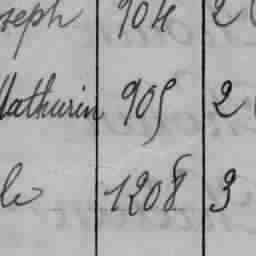 seph 904 2
Mathurin 905 2
le 1208 3